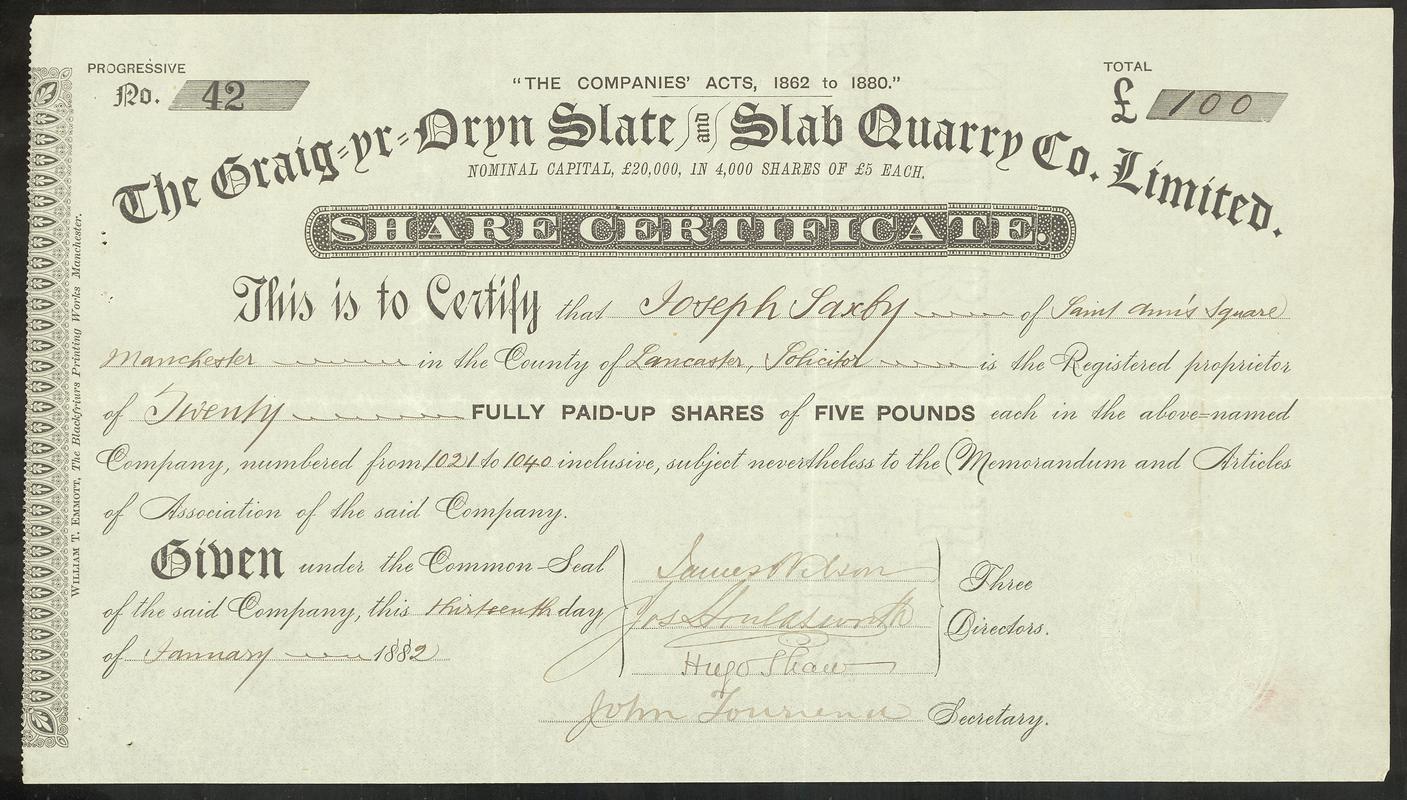 PROGRESSIVE
No. 42
"THE COMPANIES' ACTS, 1862 to 1880."
TOTAL
£ 100
The Graig-yr-Dryn Slate and Slab Quarry Co. Limited.
NOMINAL CAPITAL, £20,000, IN 4,000 SHARES OF £5 EACH.
SHARE CERTIFICATE.
This is to Certify that Joseph Saxby of Saint Ann's Square
Manchester in the County of Lancaster, Solicitor is the Registered proprietor
of Twenty FULLY PAID-UP SHARES of FIVE POUNDS each in the above-named
Company, numbered from 1021 to 1040 inclusive, subject nevertheless to the Memorandum and Articles
of Association of the said Company.
Given under the Common-Seal
of the said Company, this thirteenth day
of January 1882
James Wilson
Jos Houldsworth
Hugo Shaw
Three
Directors.
John Secretary.
WILLIAM T. EMMOTT, The Blackfriars Printing Works Manchester.